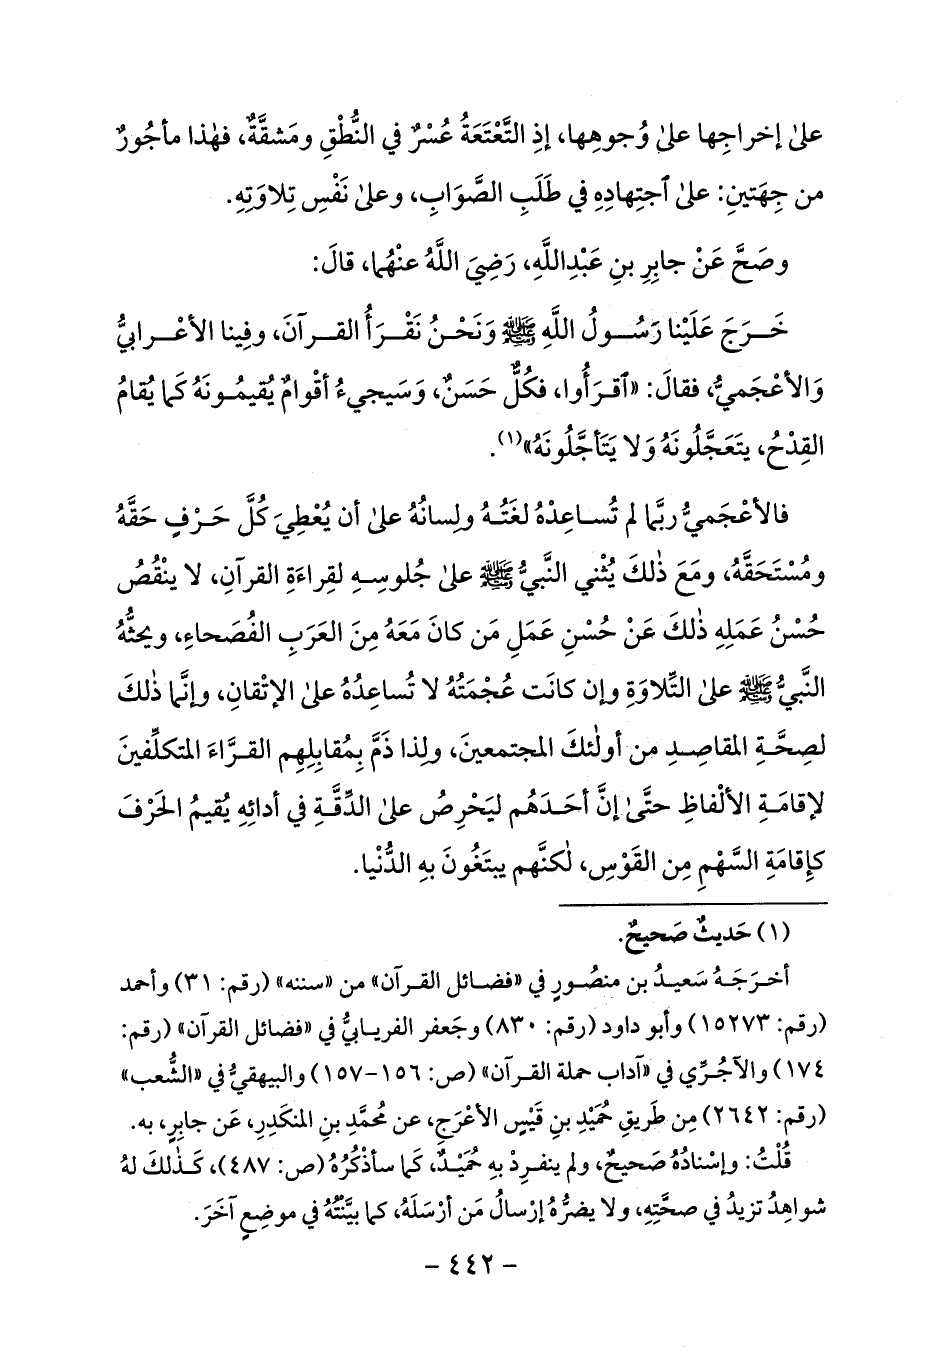 علىٰ إخراجِها علىٰ وُجوهِها، إذِ التَّعْتَعَةُ عُسْرٌ في النُّطْقِ ومَشقَّةٌ، فهٰذا مأجُورٌ
من جِهَتينِ: علىٰ ٱجتِهادِهِ في طَلَبِ الصَّوَابِ، وعلىٰ نَفْسِ تِلاوَتِهِ.
وصَحَّ عَنْ جابِرِ بنِ عَبْدِاللَّهِ، رَضِيَ اللَّهُ عنْهُما، قالَ:
خَرَجَ عَلَيْنا رَسُولُ اللَّهِ ﷺ وَنَحْنُ نَقْرَأُ القرآنَ، وفِينا الأعْرابيُّ
وَالأعْجَميُّ، فقالَ: «ٱقرَأُوا، فكُلٌّ حَسَنٌ، وَسَيجيءُ أقْوامٌ يُقيمُونَهُ كَما يُقامُ
القِدْحُ، يتَعَجَّلُونَهُ وَلا يَتَأجَّلُونَهُ»(١).
فالأعْجَميُّ ربَّما لم تُساعِدْهُ لغَتُهُ ولِسانُهُ علىٰ أن يُعْطِيَ كُلَّ حَرْفٍ حَقَّهُ
ومُسْتَحَقَّهُ، ومَعَ ذٰلكَ يُثْني النَّبيُّ ﷺ علىٰ جُلوسِهِ لقِراءَةِ القرآنِ، لا ينْقُصُ
حُسْنُ عَمَلِهِ ذٰلكَ عَنْ حُسْنِ عَمَلِ مَن كانَ مَعَهُ مِنَ العَرَبِ الفُصَحاءِ، ويحثُّهُ
النَّبيُّ ﷺ علىٰ التِّلاوَةِ وإن كانَت عُجْمَتُهُ لا تُساعِدُهُ علىٰ الإتْقانِ، وإنَّما ذٰلكَ
لصِحَّةِ المقاصِدِ من أولٰئكَ المجتمعينَ، ولِذا ذَمَّ بِمُقابِلِهِم القرَّاءَ المتكلِّفينَ
لإقامَةِ الألْفاظِ حتَّىٰ إنَّ أحَدَهُم ليَحْرِصُ علىٰ الدِّقَّةِ في أدائِهِ يُقيمُ الحَرْفَ
كإقامَةِ السَّهْمِ مِن القَوْسِ، لٰكنَّهم يبتَغُونَ بهِ الدُّنْيا.
(١) حَديثٌ صَحيحٌ.
أخرَجَهُ سَعيدُ بن منصُورٍ في «فضائل القرآن» من «سننه» (رقم: ٣١) وأحمد
(رقم: ١٥٢٧٣) وأبو داود (رقم: ٨٣٠) وجَعفر الفريابيُّ في «فضائل القرآن» (رقم:
١٧٤) والآجُرِّي في «آداب حملة القرآن» (ص: ١٥٦-١٥٧) والبيهقيُّ في «الشُّعب»
(رقم: ٢٦٤٢) مِن طَريقِ حُمَيْدِ بنِ قَيْسٍ الأعْرَجِ، عن مُحمَّدِ بنِ المنكَدِرِ، عَن جابِرٍ، به.
قُلْتُ: وإسْنادُهُ صَحيحٌ، ولم ينفرِدْ بهِ حُمَيْدٌ، كَما سأذْكُرُهُ (ص: ٤٨٧)، كَذٰلكَ لهُ
شواهِدُ تزيدُ في صحَّتِهِ، ولا يضرُّهُ إرْسالُ مَن أرْسَلَهُ، كما بيَّنْتُهُ في موضِعٍ آخَرَ.
- ٤٤٢ -